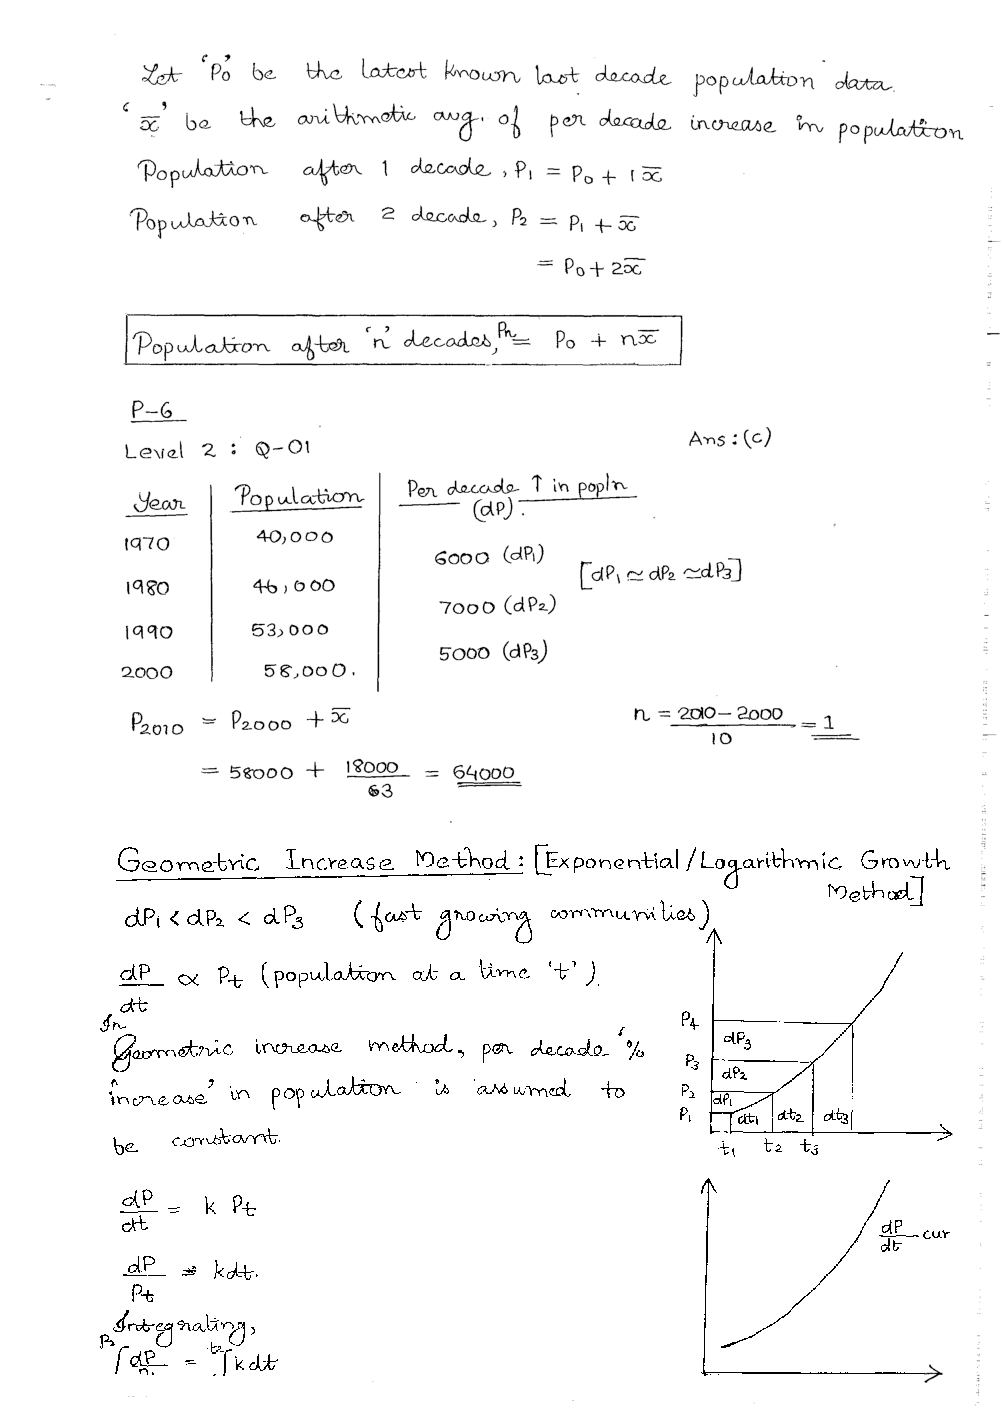 Let 'P0' be the latest known last decade population data.
'x̅' be the arithmetic avg. of per decade increase in population
Population after 1 decade, P1 = P0 + 1x̅
Population after 2 decade, P2 = P1 + x̅
= P0 + 2x̅
Population after 'n' decades, Pn = P0 + nx̅
P-6
Level 2 : Q-01 Ans : (c)
Year Population Per decade ↑ in popln (dP).
1970 40,000
6000 (dP1)
[dP1 ≃ dP2 ≃ dP3]
1980 46,000
7000 (dP2)
1990 53,000
5000 (dP3)
2000 58,000.
P2010 = P2000 + x̅ n = 2010 - 2000 / 10 = 1
= 58000 + 18000 / 3 = 64000
Geometric Increase Method : [Exponential / Logarithmic Growth
Method]
dP1 < dP2 < dP3 (fast growing communities)
dP/dt ∝ Pt (population at a time 't').
In
Geometric increase method, per decade '%
increase' in population is assumed to
be constant.
P4
dP3
P3
dP2
P2
dP1
P1
dt1 dt2 dt3
t1 t2 t3
dP/dt = k Pt
dP/dt cur
dP/Pt = kdt.
Integrating,
∫ dP = ∫ kdt